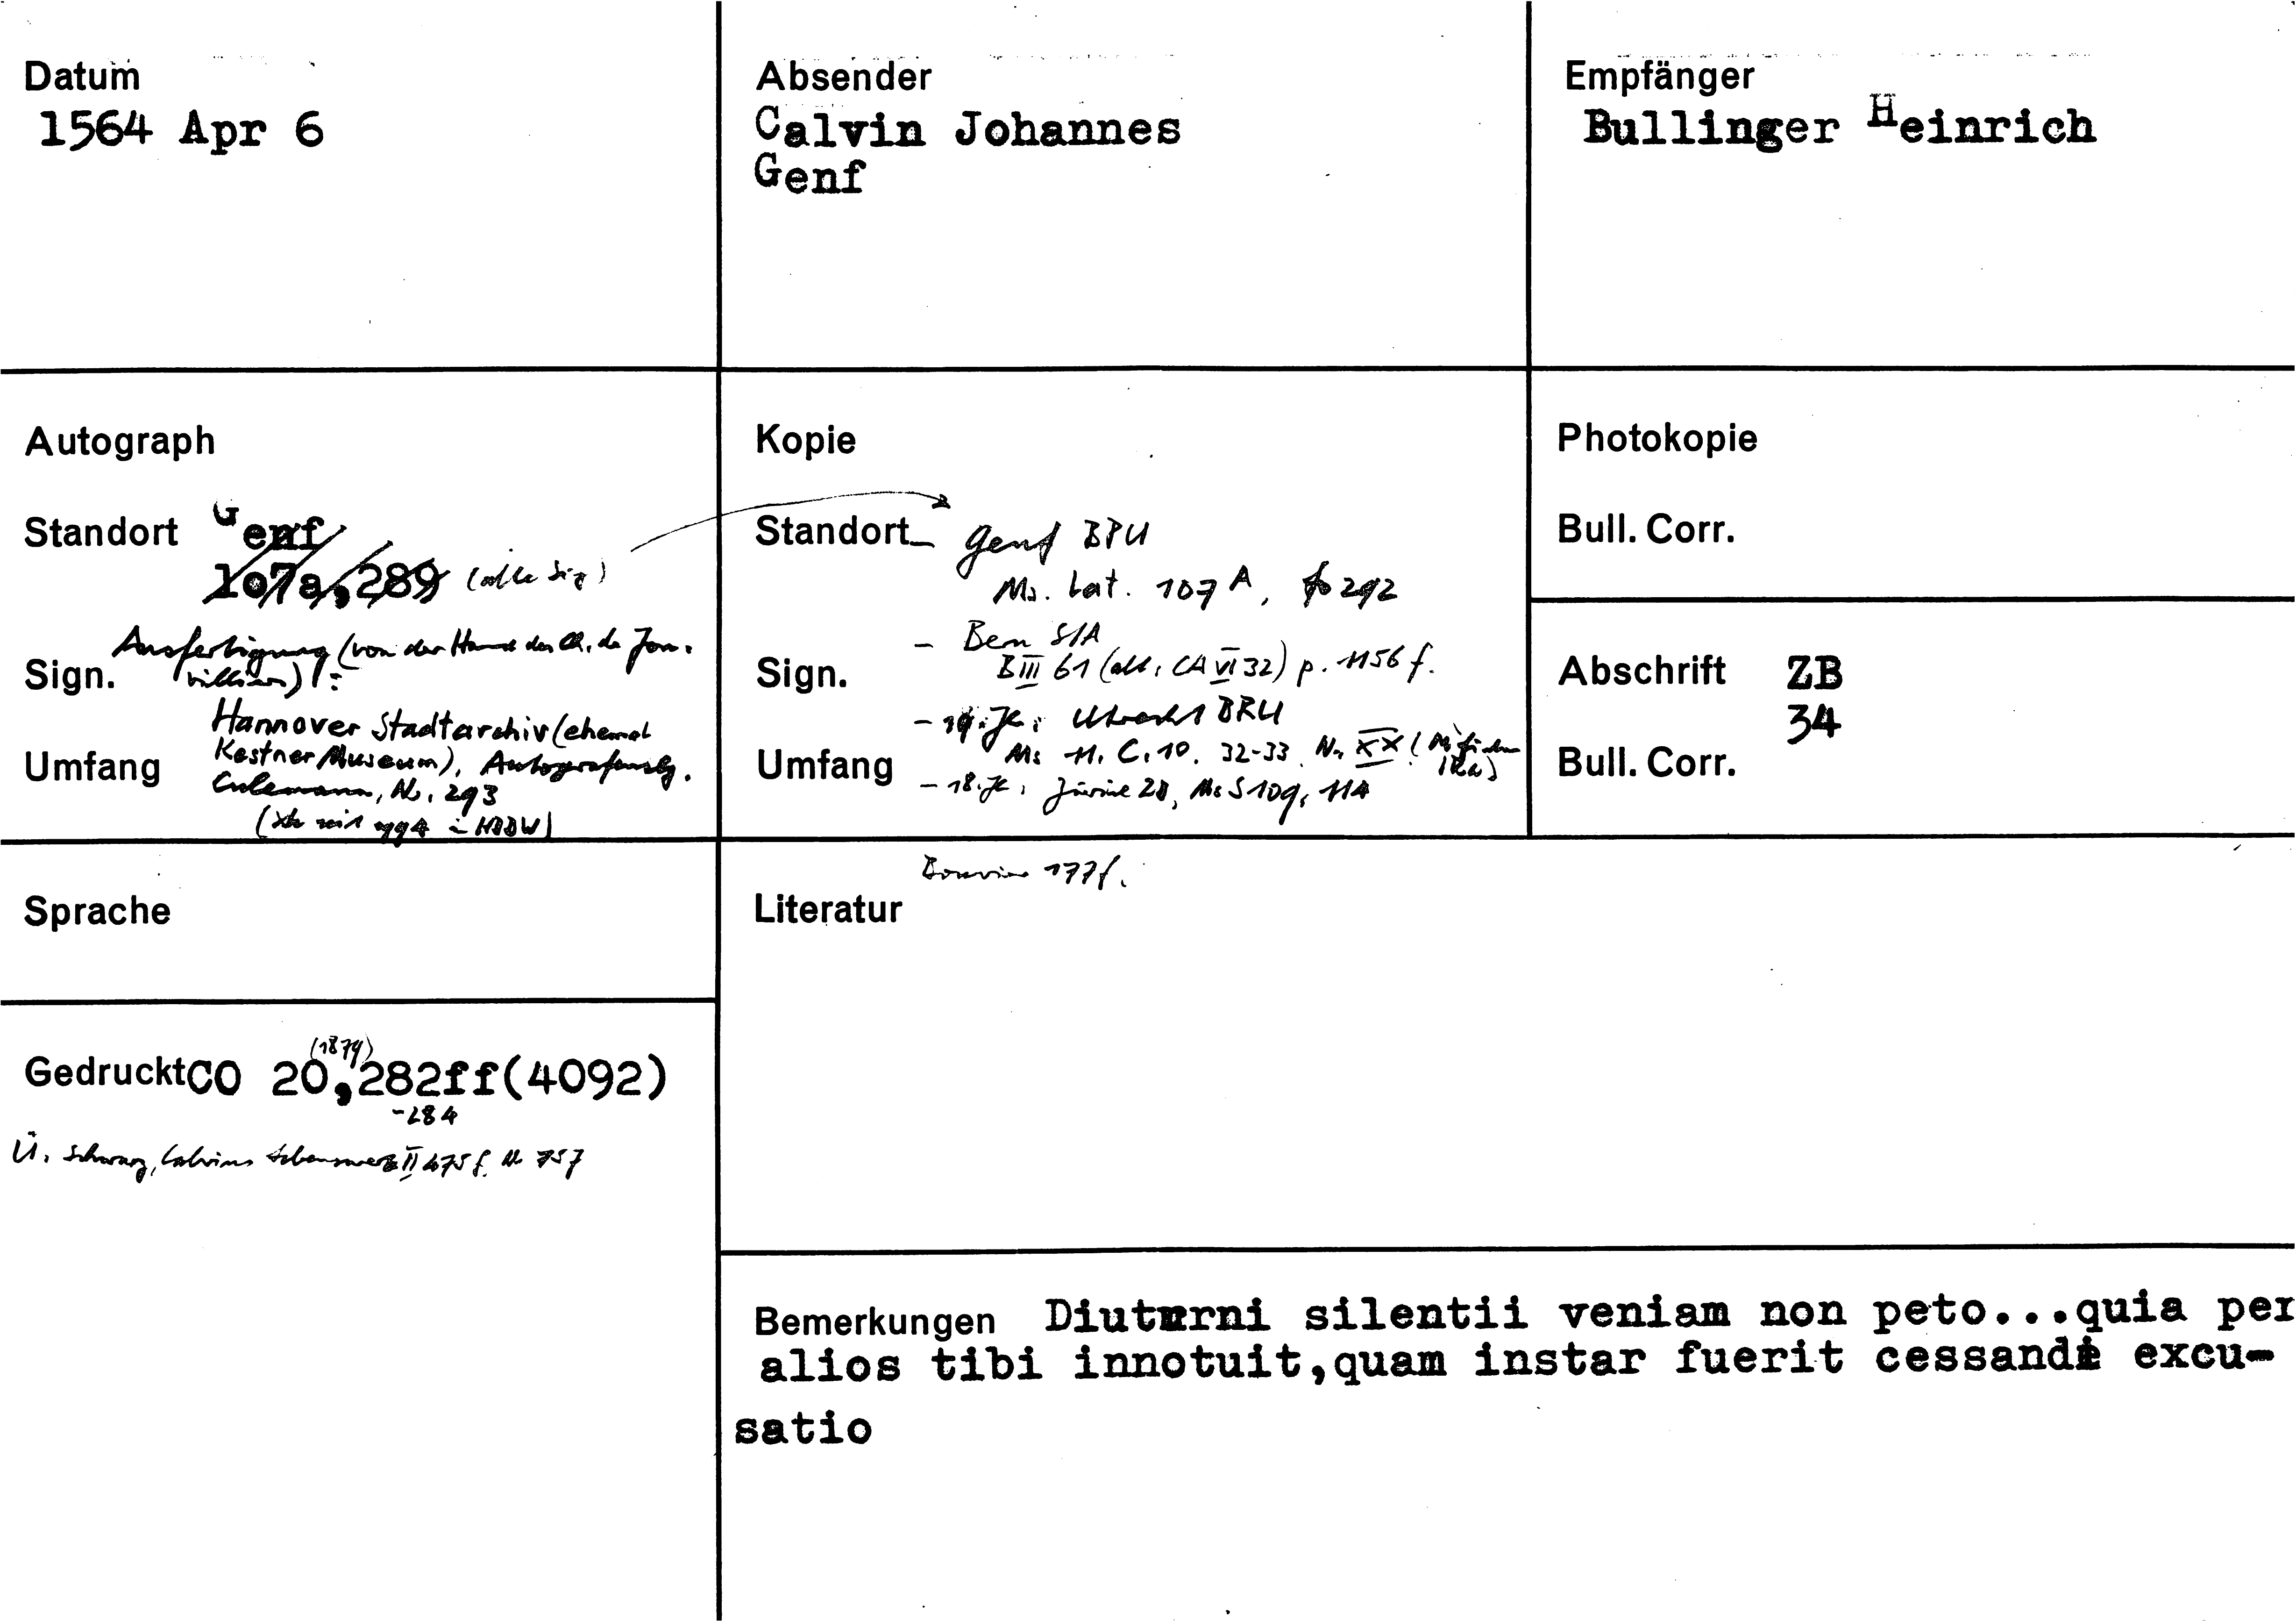 Datum
1564 Apr 6
Absender
Calvin Johannes
Genf
Empfänger
Bullinger Heinrich
Autograph
Standort Genf
107a,289 (alte Sig)
Sign. Ausfertigung (von der Hand des Ch. de Jon-
villiers):
Hannover Stadtarchiv (ehemal
Umfang Kestner Museum), Autografenslg.
Culemann, Nr. 293
1994 in HBBW)
Kopie
Standort - Genf BPU
Ms. Lat. 107 A, fo 292
- Bern StA
Sign. B III 61 (alt: CA VI 32) p. 1156 f.
- 19. Jh: Utrecht BRU
Umfang Ms 11. C. 10. 32-33 Nr XX (Mikrofichen
- 18. Jh: Zürich ZB, Ms S 109, 114
Photokopie
Bull. Corr.
Abschrift ZB
34
Bull. Corr.
Sprache
Bouvier 177f.
Literatur
(1879)
Gedruckt CO 20,282ff(4092)
-284
Ü. Schwarz, Calvins Lebenswerk II 475 f. Nr 757
Bemerkungen Diuturni silentii veniam non peto...quia per
alios tibi innotuit,quam instar fuerit cessandi excu-
satio